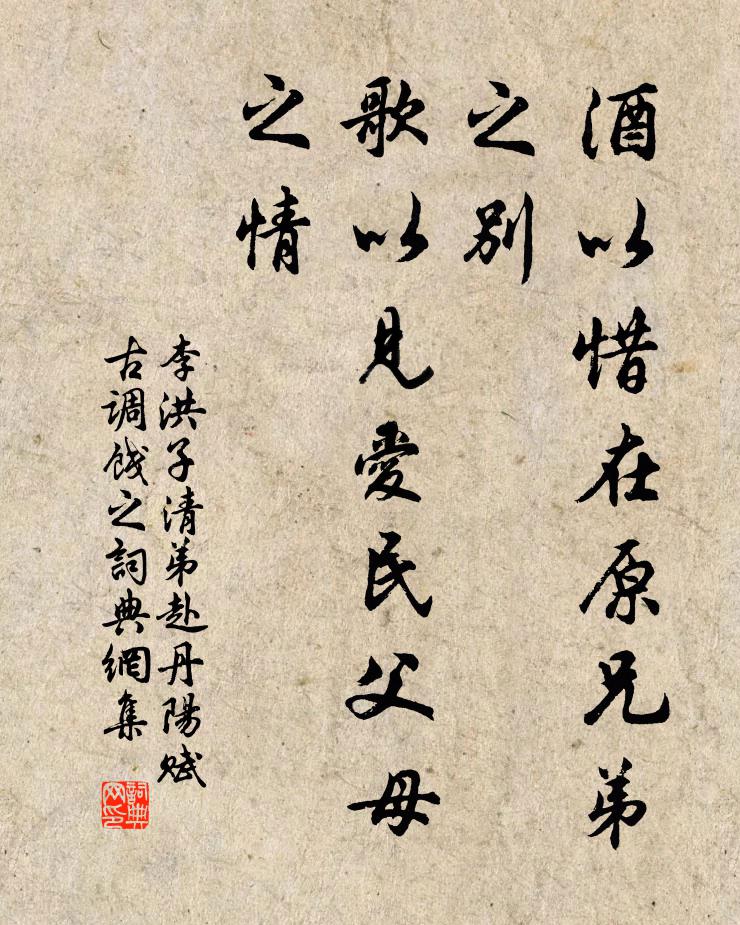 酒以惜在原兄弟
之别
歌以見愛民父母
之情
李洪子清弟赴丹陽赋
古調餞之詞典網集
詞典
网印